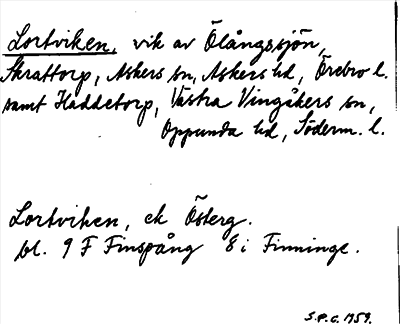 Lortviken, vik av Ölångssjön,
Skrattorp, Askers sn, Askers hd, Örebro l.
samt Haddetorp, Västra Vingåkers sn,
Oppunda hd, Söderm. l.
Lortviken, ek Österg.
bl. 9 F Finspång 8 i Finninge.
S.P.G. 1959.